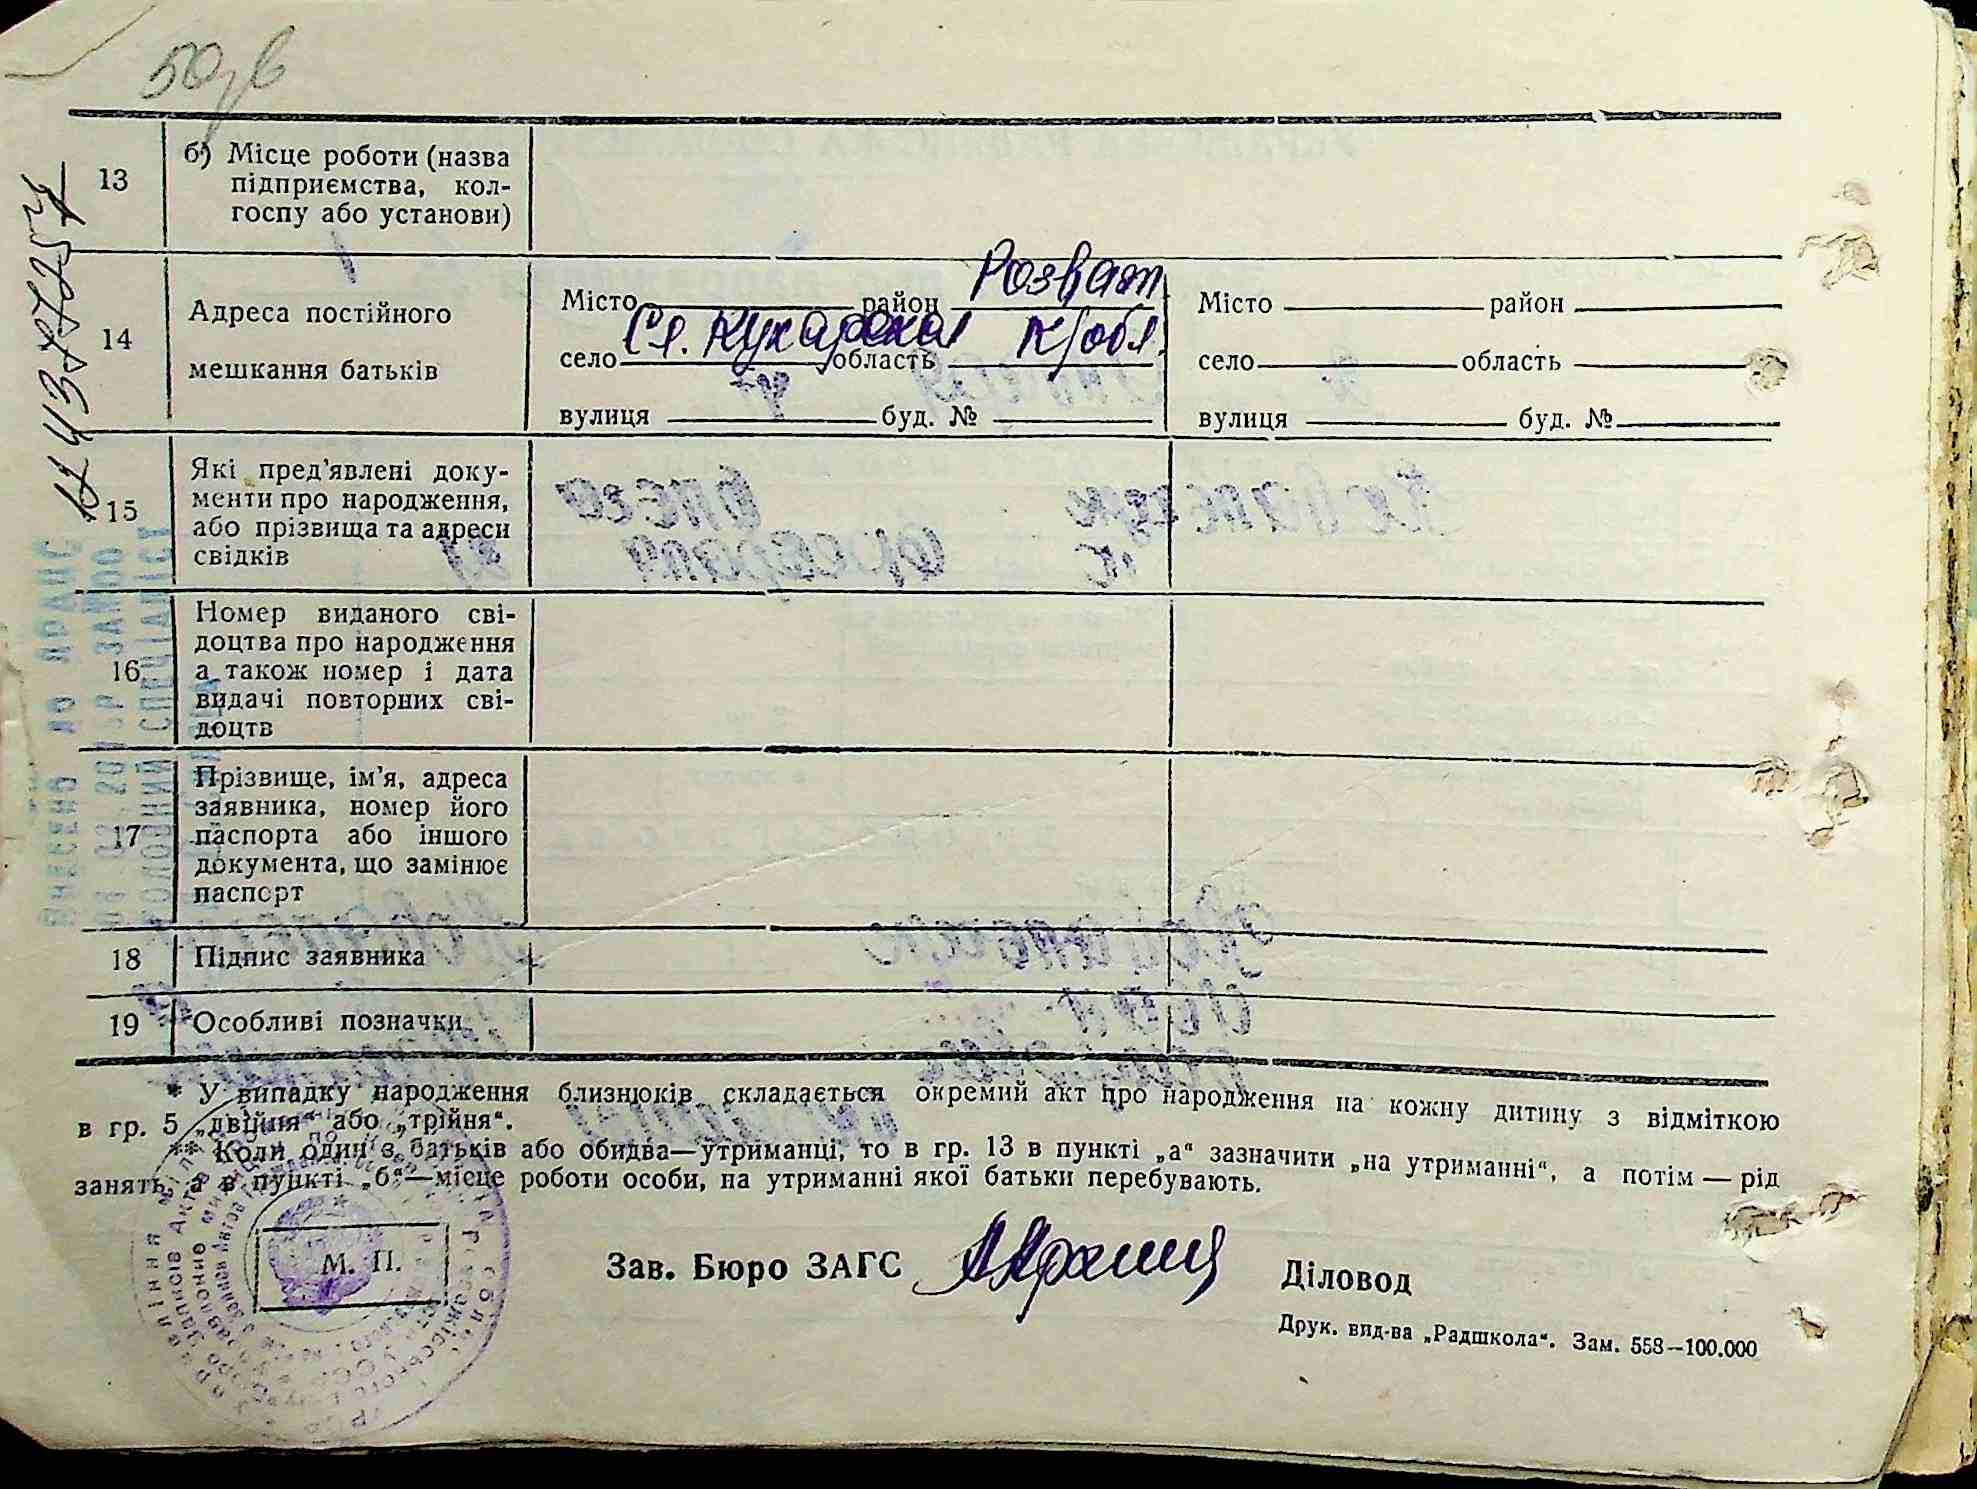 50
13
б) Місце роботи (назва
підприємства, кол-
госпу або установи)
14
Адреса постійного
мешкання батьків
Місто район Розваж
село Ст. Кухарская область К/обл.
вулиця буд. №
Місто район
село область
вулиця буд. №
15
Які пред'явлені доку-
менти про народження,
або прізвища та адреси
свідків
16
Номер виданого сві-
доцтва про народження
а також номер і дата
видачі повторних сві-
доцтв
17
Прізвище, ім'я, адреса
заявника, номер його
паспорта або іншого
документа, що замінює
паспорт
18
Підпис заявника
19
Особливі позначки
* У випадку народження близнюків складається окремий акт про народження на кожну дитину з відміткою
в гр. 5 „двійня“ або „трійня“.
** Коли один з батьків або обидва—утриманці, то в гр. 13 в пункті „а“ зазначити „на утриманні“, а потім — рід
занять, а в пункті „б“—місце роботи особи, на утриманні якої батьки перебувають.
М. П.
Зав. Бюро ЗАГС
Діловод
Друк. вид-ва „Радшкола“. Зам. 558—100.000